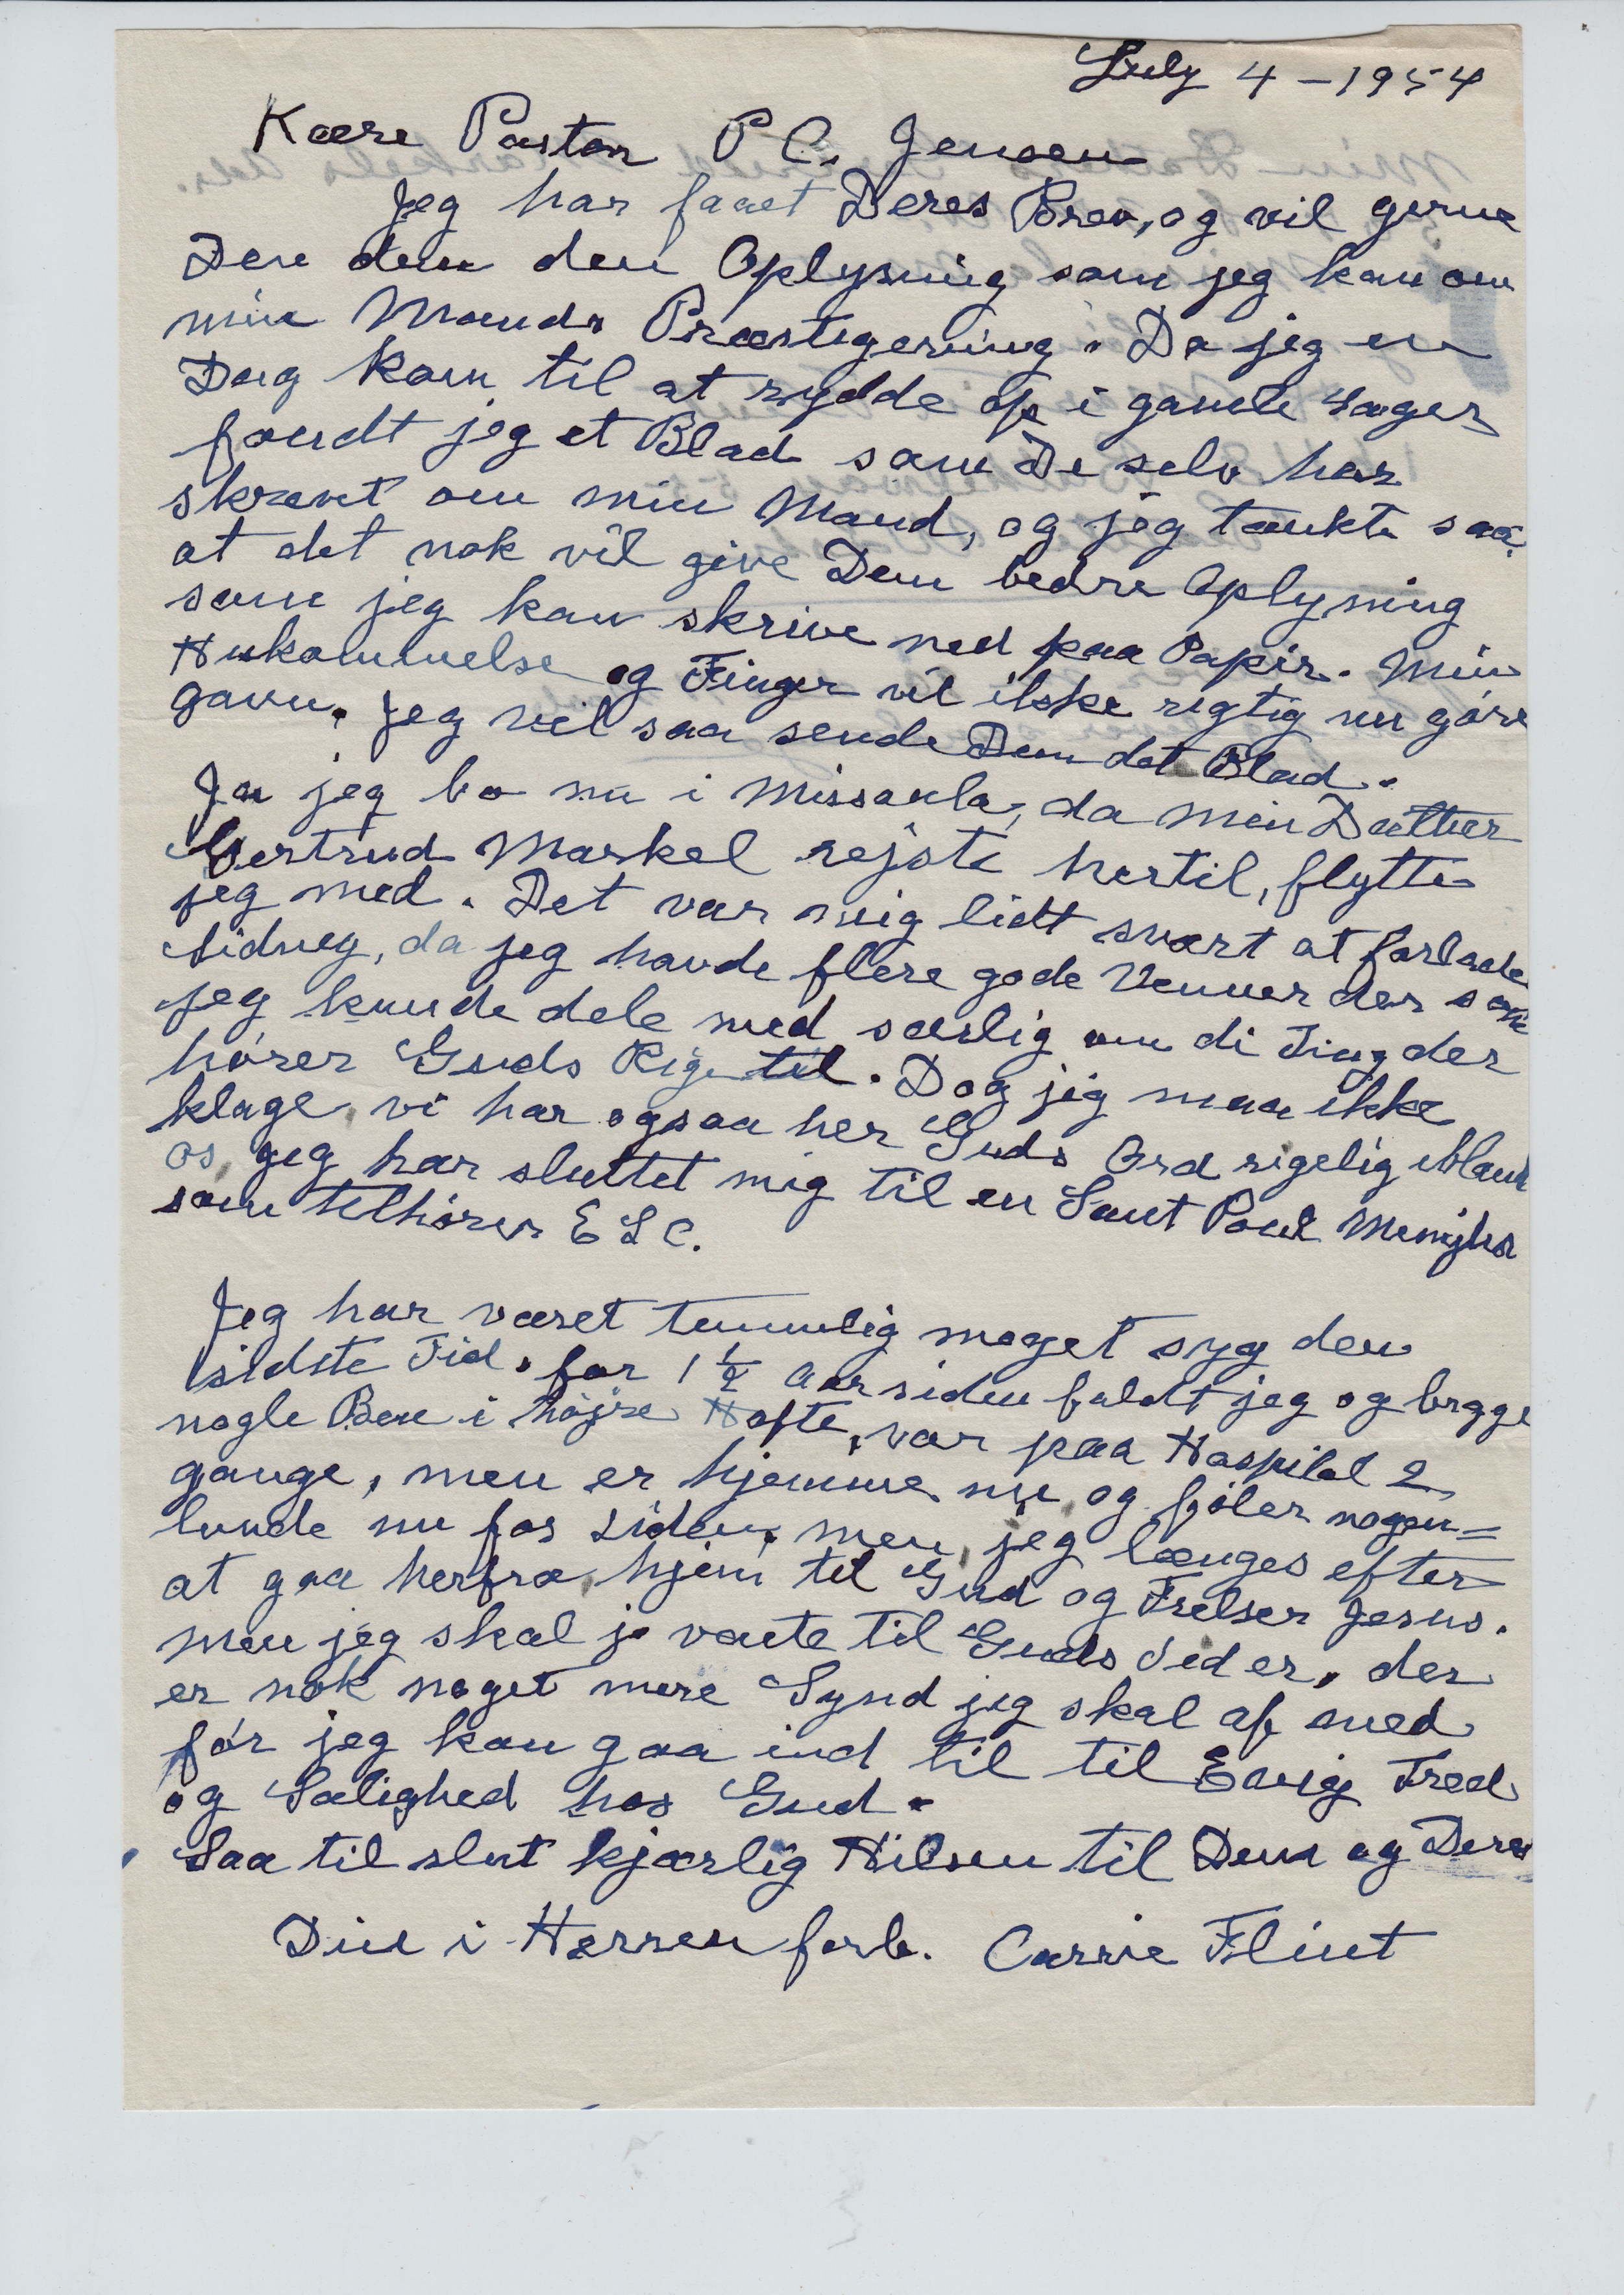 July 4 - 1954
Kære Pastor P C. Jensen
Jeg har faaet Deres Brev, og vil gerne
den Oplysning som jeg kan om
min Mands Præstegerning. Da jeg en
Dag kom til at rydde op i gamle Sager
fandt jeg et Blad som De selv har
skrevt om min Mand, og jeg tænkte saa,
at det nok vil give Dem bedre Oplysning
som jeg kan skrive ned paa Papir. Min
Hukommelse og Finger vil ikke rigtig nu göre
gavn. Jeg vil saa sende Dem det Blad.
Ja jeg bo nu i Missoula, da min Datter
Gertrud Markel rejste hertil, flytte
jeg med. Det var mig lidt svært at forlade
Sidney, da jeg havde flere gode Venner der som
jeg kunde dele med særlig om di Ting der
hører Guds Rige til. Dog jeg maa ikke
klage, vi har ogsaa her Guds Ord rigelig iblant
os, jeg har sluttet mig til en Sant Poul
som tilhører E L C.
Jeg har været temmlig meget syg den
sidste Tid. for 1 1/2 Aar siden faldt jeg og brygge
nogle Ben i højre Hofte, var paa Hospital 2
gange, men er hjemme nu og föler nogen=
lunde nu for tiden, men jeg længes efter
at gaa herfra hjem til Gud og Frelser Jesus.
men jeg skal jo vente til Guds Tid er, der
er nok noget mere Synd jeg skal af med
før jeg kan gaa ind til til Evig Fred
og Salighed hos Gud.
Saa til slut kjærlig Hilsen til Dem og Deres
Din i Herren forb. Carrie Flint